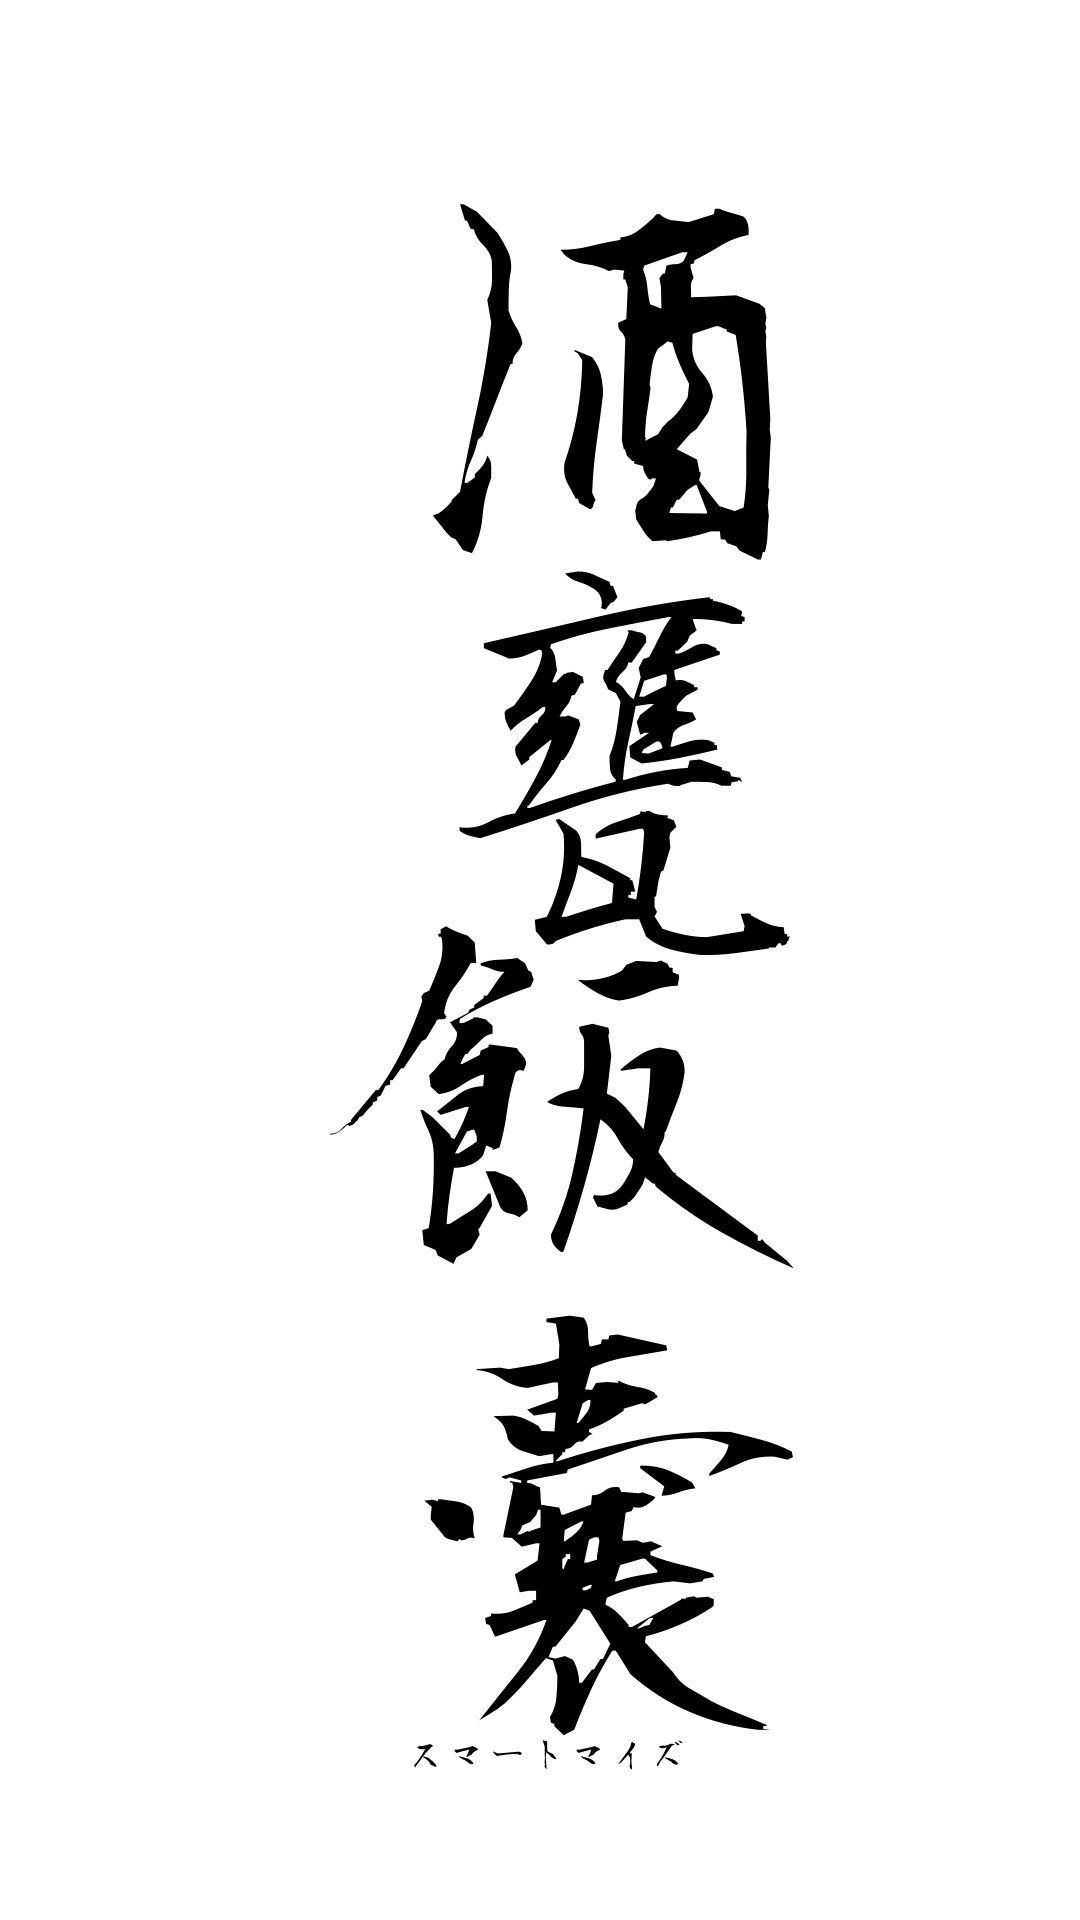 酒甕飯嚢
スマートマイズ